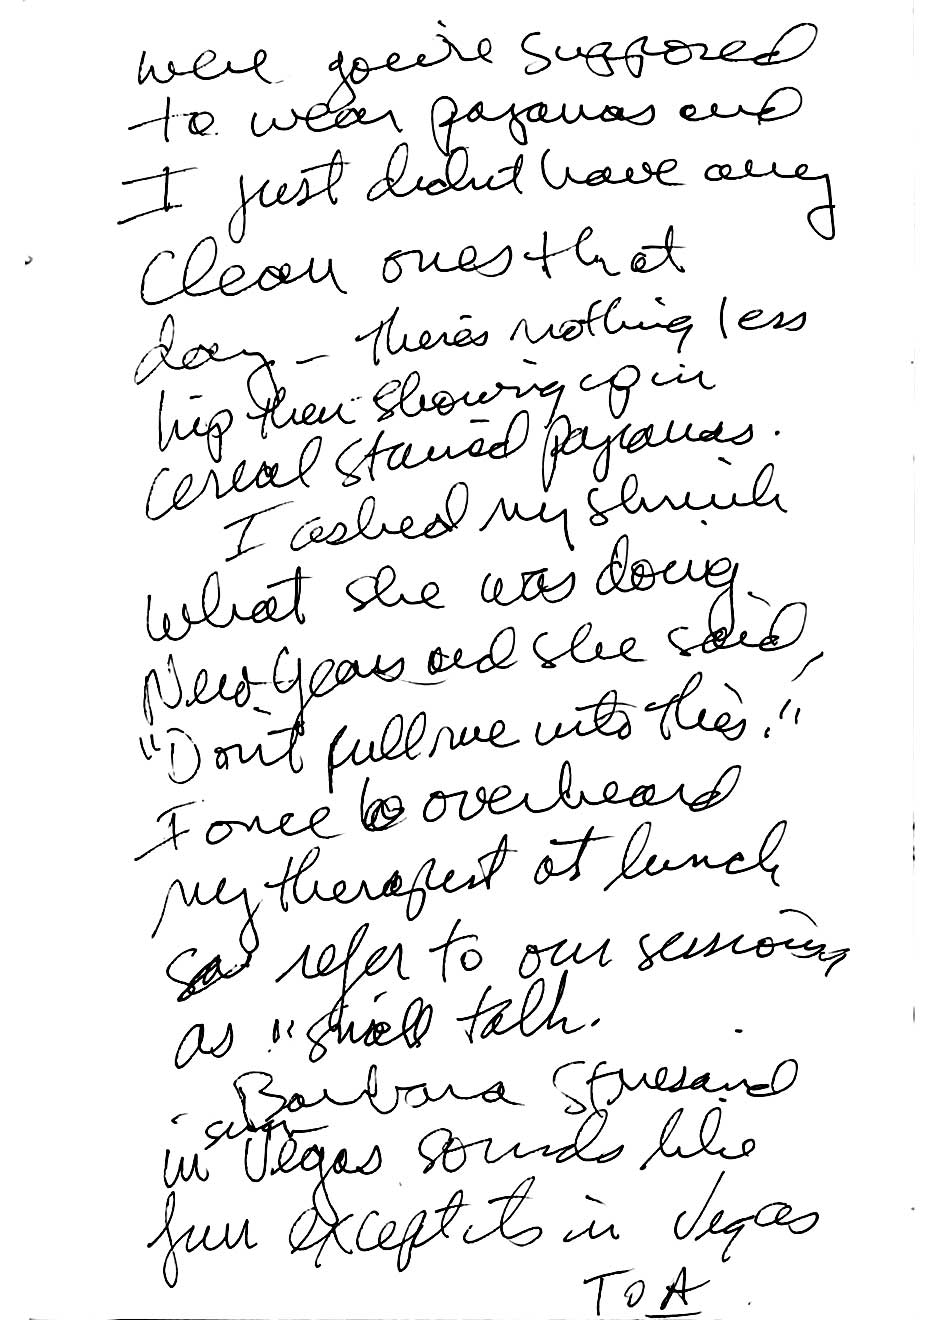 were you're supposed
to wear pajamas and
I just didn't have any
Clean ones that
day - there's nothing less
hip then showing up in
cereal stained pajamas.
I asked my shrink
what she was doing
New Years and she said,
"Don't pull me into this."
I once overheard
my therapist at lunch
refer to our sessions
as "small talk.
Barbara Streisand
in Vegas sounds like
fun except its in Vegas
TO A